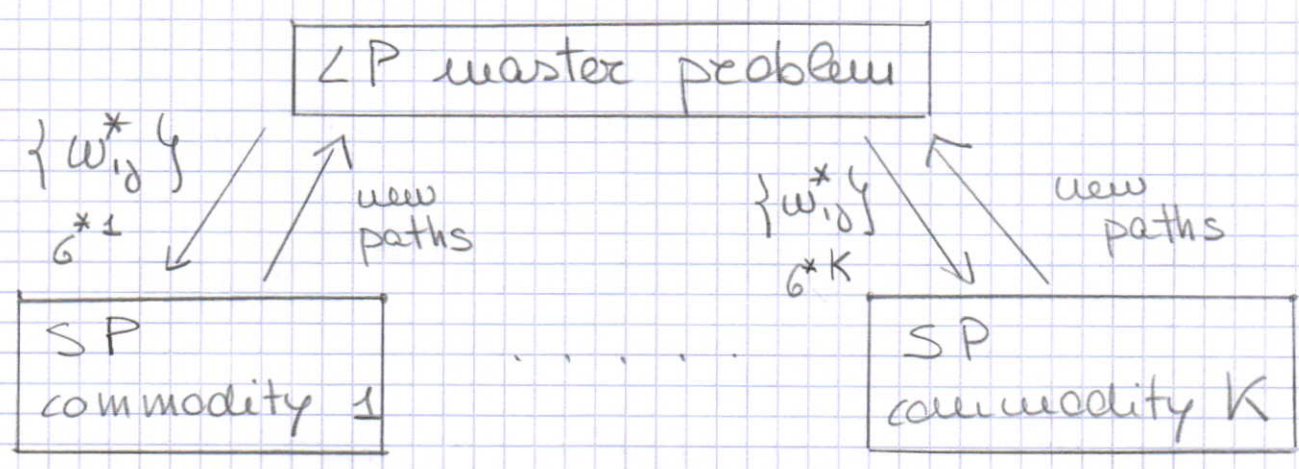 LP master problem
{w*ij}
σ*1
new
paths
{w*ij}
σ*K
new
paths
SP
commodity 1
. . . . .
SP
commodity K